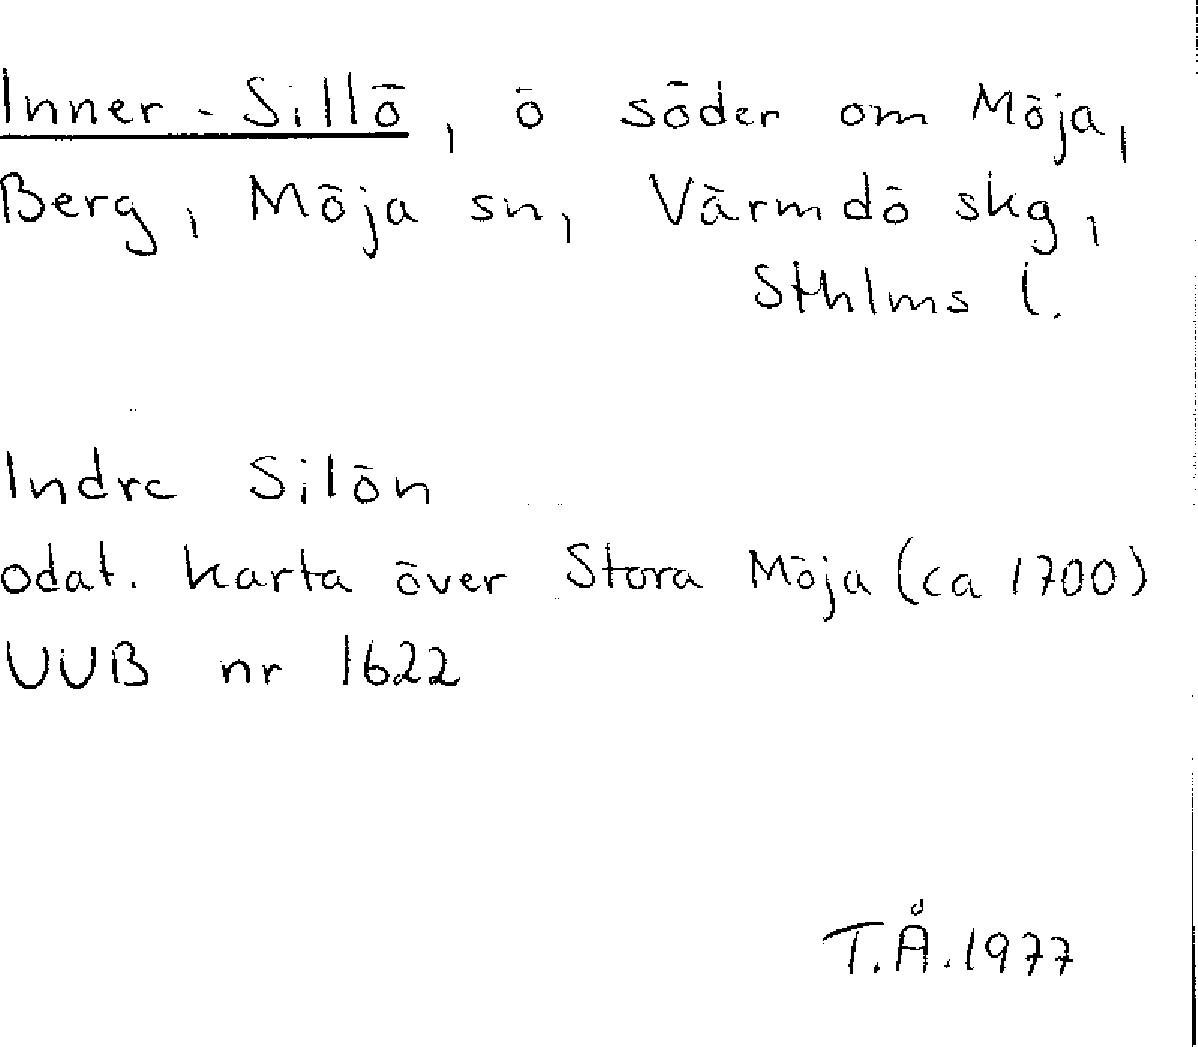 Inner-Sillö, ö söder om Möja,
Berg, Möja sn, Värmdö skg,
Sthlms l.
Indre Silön
odat. karta över Stora Möja (ca 1700)
UUB nr 1622
T.Å.1977